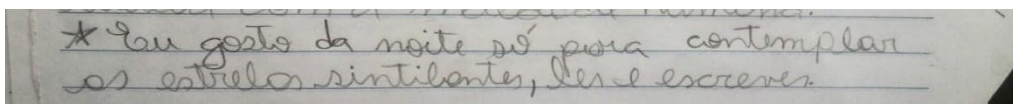 * Eu gosto da noite só para contemplar
as estrelas sintilantes, ler e escrever.